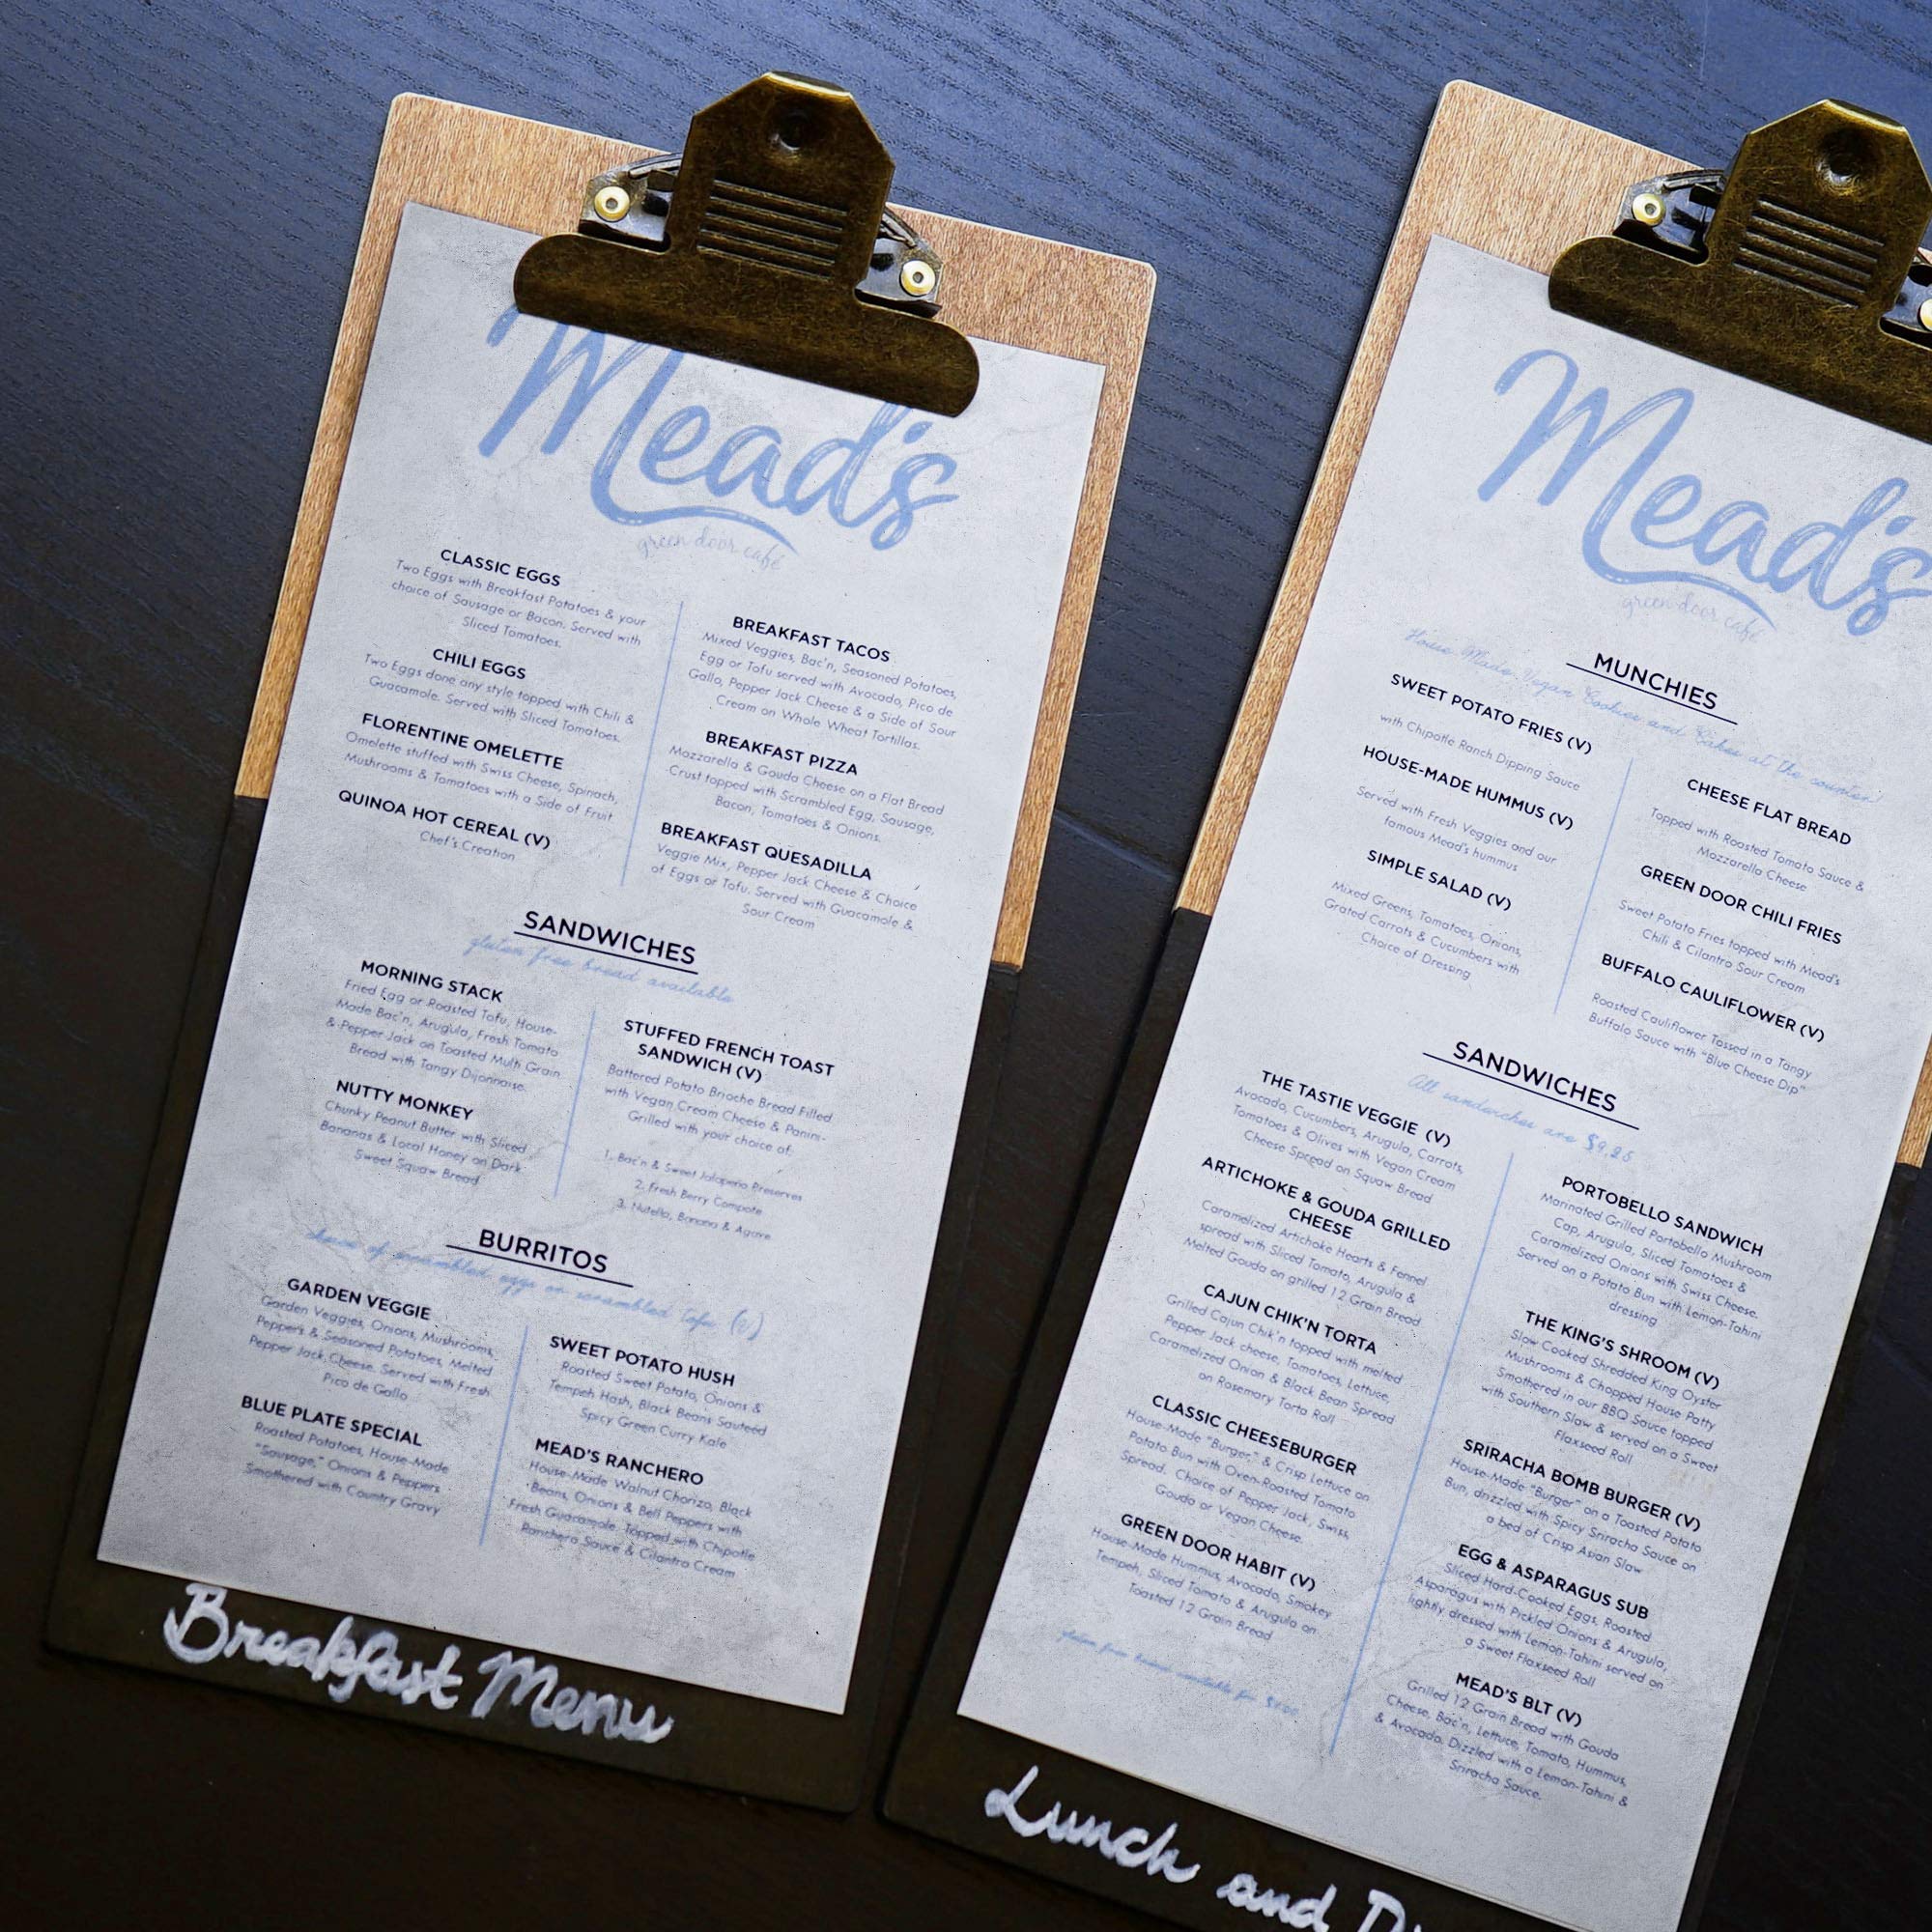 Mead's
green door café
CLASSIC EGGS
Two Eggs with Breakfast Potatoes & your
choice of Sausage or Bacon. Served with
Sliced Tomatoes.
CHILI EGGS
Two Eggs done any style topped with Chili &
Guacamole. Served with Sliced Tomatoes.
FLORENTINE OMELETTE
Omelette stuffed with Swiss Cheese, Spinach,
Mushrooms & Tomatoes with a Side of Fruit
QUINOA HOT CEREAL (V)
Chef's Creation
BREAKFAST TACOS
Mixed Veggies, Bac'n, Seasoned Potatoes,
Egg or Tofu served with Avocado, Pico de
Gallo, Pepper Jack Cheese & a Side of Sour
Cream on Whole Wheat Tortillas.
BREAKFAST PIZZA
Mozzarella & Gouda Cheese on a Flat Bread
Crust topped with Scrambled Egg, Sausage,
Bacon, Tomatoes & Onions.
BREAKFAST QUESADILLA
Veggie Mix, Pepper Jack Cheese & Choice
of Eggs or Tofu. Served with Guacamole &
Sour Cream
SANDWICHES
gluten free bread available
MORNING STACK
Fried Egg or Roasted Tofu, House-
Made Bac'n, Arugula, Fresh Tomato
& Pepper Jack on Toasted Multi Grain
Bread with Tangy Dijonnaise.
NUTTY MONKEY
Chunky Peanut Butter with Sliced
Bananas & Local Honey on Dark
Sweet Squaw Bread
STUFFED FRENCH TOAST
SANDWICH (V)
Battered Potato Brioche Bread Filled
with Vegan Cream Cheese & Panini-
Grilled with your choice of:
1. Bac'n & Sweet Jalapeño Preserves
2. Fresh Berry Compote
3. Nutella, Banana & Agave
BURRITOS
choice of scrambled eggs or scrambled tofu (v)
GARDEN VEGGIE
Garden Veggies, Onions, Mushrooms,
Peppers & Seasoned Potatoes, Melted
Pepper Jack Cheese. Served with Fresh
Pico de Gallo
BLUE PLATE SPECIAL
Roasted Potatoes, House-Made
"Sausage," Onions & Peppers
Smothered with Country Gravy
SWEET POTATO HUSH
Roasted Sweet Potato, Onions &
Tempeh Hash, Black Beans Sauteed
Spicy Green Curry Kale
MEAD'S RANCHERO
House-Made Walnut Chorizo, Black
Beans, Onions & Bell Peppers with
Fresh Guacamole. Topped with Chipotle
Ranchero Sauce & Cilantro Cream
Breakfast Menu
Mead's
green door café
MUNCHIES
House Made Vegan Cookies and Cakes at the counter!
SWEET POTATO FRIES (V)
with Chipotle Ranch Dipping Sauce
HOUSE-MADE HUMMUS (V)
Served with Fresh Veggies and our
famous Mead's hummus
SIMPLE SALAD (V)
Mixed Greens, Tomatoes, Onions,
Grated Carrots & Cucumbers with
Choice of Dressing
CHEESE FLAT BREAD
Topped with Roasted Tomato Sauce &
Mozzarella Cheese
GREEN DOOR CHILI FRIES
Sweet Potato Fries topped with Mead's
Chili & Cilantro Sour Cream
BUFFALO CAULIFLOWER (V)
Roasted Cauliflower Tossed in a Tangy
Buffalo Sauce with "Blue Cheese Dip"
SANDWICHES
All sandwiches are $9.25
THE TASTIE VEGGIE (V)
Avocado, Cucumbers, Arugula, Carrots,
Tomatoes & Olives with Vegan Cream
Cheese Spread on Squaw Bread
ARTICHOKE & GOUDA GRILLED
CHEESE
Caramelized Artichoke Hearts & Fennel
spread with Sliced Tomato, Arugula &
Melted Gouda on grilled 12 Grain Bread
CAJUN CHIK'N TORTA
Grilled Cajun Chik'n topped with melted
Pepper Jack cheese, Tomatoes, Lettuce,
Caramelized Onion & Black Bean Spread
on Rosemary Torta Roll
CLASSIC CHEESEBURGER
House-Made "Burger," & Crisp Lettuce on
Potato Bun with Oven-Roasted Tomato
Spread. Choice of Pepper Jack, Swiss,
Gouda or Vegan Cheese.
GREEN DOOR HABIT (V)
House-Made Hummus, Avocado, Smokey
Tempeh, Sliced Tomato & Arugula on
Toasted 12 Grain Bread
gluten free bread available for
PORTOBELLO SANDWICH
Marinated Grilled Portobello Mushroom
Cap, Arugula, Sliced Tomatoes &
Caramelized Onions with Swiss Cheese.
Served on a Potato Bun with Lemon-Tahini
dressing
THE KING'S SHROOM (V)
Slow Cooked Shredded King Oyster
Mushrooms & Chopped House Patty
Smothered in our BBQ Sauce topped
with Southern Slaw & served on a Sweet
Flaxseed Roll
SRIRACHA BOMB BURGER (V)
House-Made "Burger" on a Toasted Potato
Bun, drizzled with Spicy Sriracha Sauce on
a bed of Crisp Asian Slaw
EGG & ASPARAGUS SUB
Sliced Hard-Cooked Eggs, Roasted
Asparagus with Pickled Onions & Arugula,
lightly dressed with Lemon-Tahini served on
a Sweet Flaxseed Roll
MEAD'S BLT (V)
Grilled 12 Grain Bread with Gouda
Cheese, Bac'n, Lettuce, Tomato, Hummus,
& Avocado. Dizzled with a Lemon-Tahini &
Sriracha Sauce.
Lunch and Di